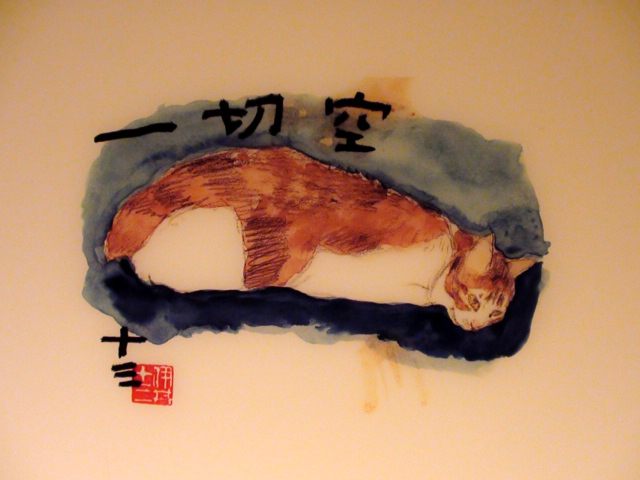 一切空
十三